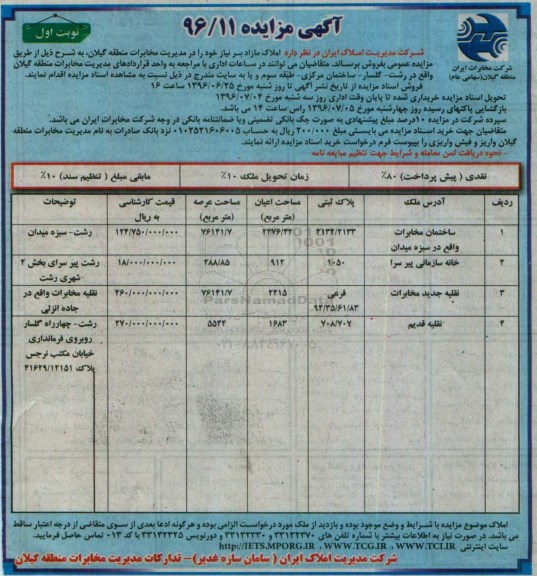 آگهی مزایده ۹۶/۱۱
نوبت اول
شرکت مخابرات ایران
منطقه گیلان(سهامی عام)
شرکت مدیریت املاک ایران در نظر دارد املاک مازاد بر نیاز خود را در مدیریت مخابرات منطقه گیلان، به شرح ذیل از طریق
مزایده عمومی بفروش برساند. متقاضیان می توانند در ساعات اداری با مراجعه به واحد قراردادهای مدیریت مخابرات منطقه گیلان
واقع در رشت- گلسار- ساختمان مرکزی- طبقه سوم و یا به سایت مندرج در ذیل نسبت به مشاهده اسناد مزایده اقدام نمایند.
فروش اسناد مزایده از تاریخ نشر آگهی تا روز شنبه مورخ ۱۳۹۶/۰۶/۲۵ ساعت ۱۶
تحویل اسناد مزایده خریداری شده تا پایان وقت اداری روز سه شنبه مورخ ۱۳۹۶/۰۷/۰۴
بازگشایی پاکتهای رسیده روز چهارشنبه مورخ ۱۳۹۶/۰۷/۰۵ راس ساعت ۱۴ می باشد.
سپرده شرکت در مزایده ۱۰درصد مبلغ پیشنهادی به صورت چک بانکی تضمینی ویا ضمانتنامه بانکی در وجه شرکت مخابرات ایران می باشد.
متقاضیان جهت خرید اسناد مزایده می بایستی مبلغ ۲۰۰/۰۰۰ ریال به حساب ۰۱۰۲۵۲۱۶۰۶۰۰۵ نزد بانک صادرات به نام مدیریت مخابرات منطقه
گیلان واریز و فیش واریزی را بپیوست فرم درخواست خرید اسناد مزایده ارائه نمایند.
- نحوه دریافت ثمن معامله و شرایط جهت تنظیم مبایعه نامه
نقدی ( پیش پرداخت) ۸۰٪ زمان تحویل ملک ۱۰٪ مابقی مبلغ ( تنظیم سند) ۱۰٪
ردیف آدرس ملک پلاک ثبتی مساحت اعیان (متر مربع) مساحت عرصه (متر مربع) قیمت کارشناسی به ریال توضیحات
۱ ساختمان مخابرات واقع در سبزه میدان ۲۱۳۲/۲۱۳۳ ۲۳۷۶/۴۲ ۷۶۱۴۱/۷ ۱۲۴/۷۵۰/۰۰۰/۰۰۰ رشت- سبزه میدان
۲ خانه سازمانی پیر سرا ۱۰۵۰ ۹۱۲ ۲۸۸/۸۵ ۱۸/۰۰۰/۰۰۰/۰۰۰ رشت پیر سرای بخش ۲ شهری رشت
۳ نقلیه جدید مخابرات فرعی ۹۲/۳۵/۶۱/۸۳ ۲۲۱۵ ۷۶۱۴۱/۷ ۲۶۰/۰۰۰/۰۰۰/۰۰۰ نقلیه مخابرات واقع در جاده انزلی
۴ نقلیه قدیم ۷۰۸/۷۰۷ ۱۶۸۳ ۵۵۴۲ ۲۷۰/۰۰۰/۰۰۰/۰۰۰ رشت- چهارراه گلسار روبروی فرمانداری خیابان مکتب نرجس پلاک ۴۱۶۲۹/۱۲۱۵۱
ParsNamadData
۰۲۱-۸۸۳۴۹۶۷۰
املاک موضوع مزایده با شرایط و وضع موجود بوده و بازدید از ملک مورد درخواست الزامی بوده و هرگونه ادعا بعدی از سوی متقاضی از درجه اعتبار ساقط
می باشد. در صورت نیاز به اطلاعات بیشتر با شماره تلفن های ۳۳۱۲۲۲۷۰ و ۳۳۱۳۲۲۳۰ و دورنویس ۳۳۱۳۲۲۲۵ با کد ۰۱۳ تماس حاصل فرمایید.
سایت اینترنتی HTTP://IETS.MPORG.IR ، WWW.TCG.IR ، WWW.TCI.IR
شرکت مدیریت املاک ایران ( سامان سازه غدیر)– تدارکات مدیریت مخابرات منطقه گیلان